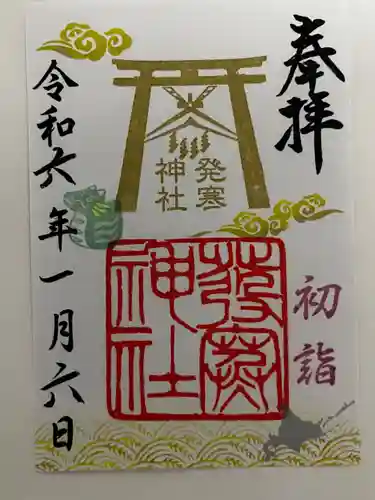 奉拝
初詣
発寒
神社
發寒
神社
令和六年一月六日